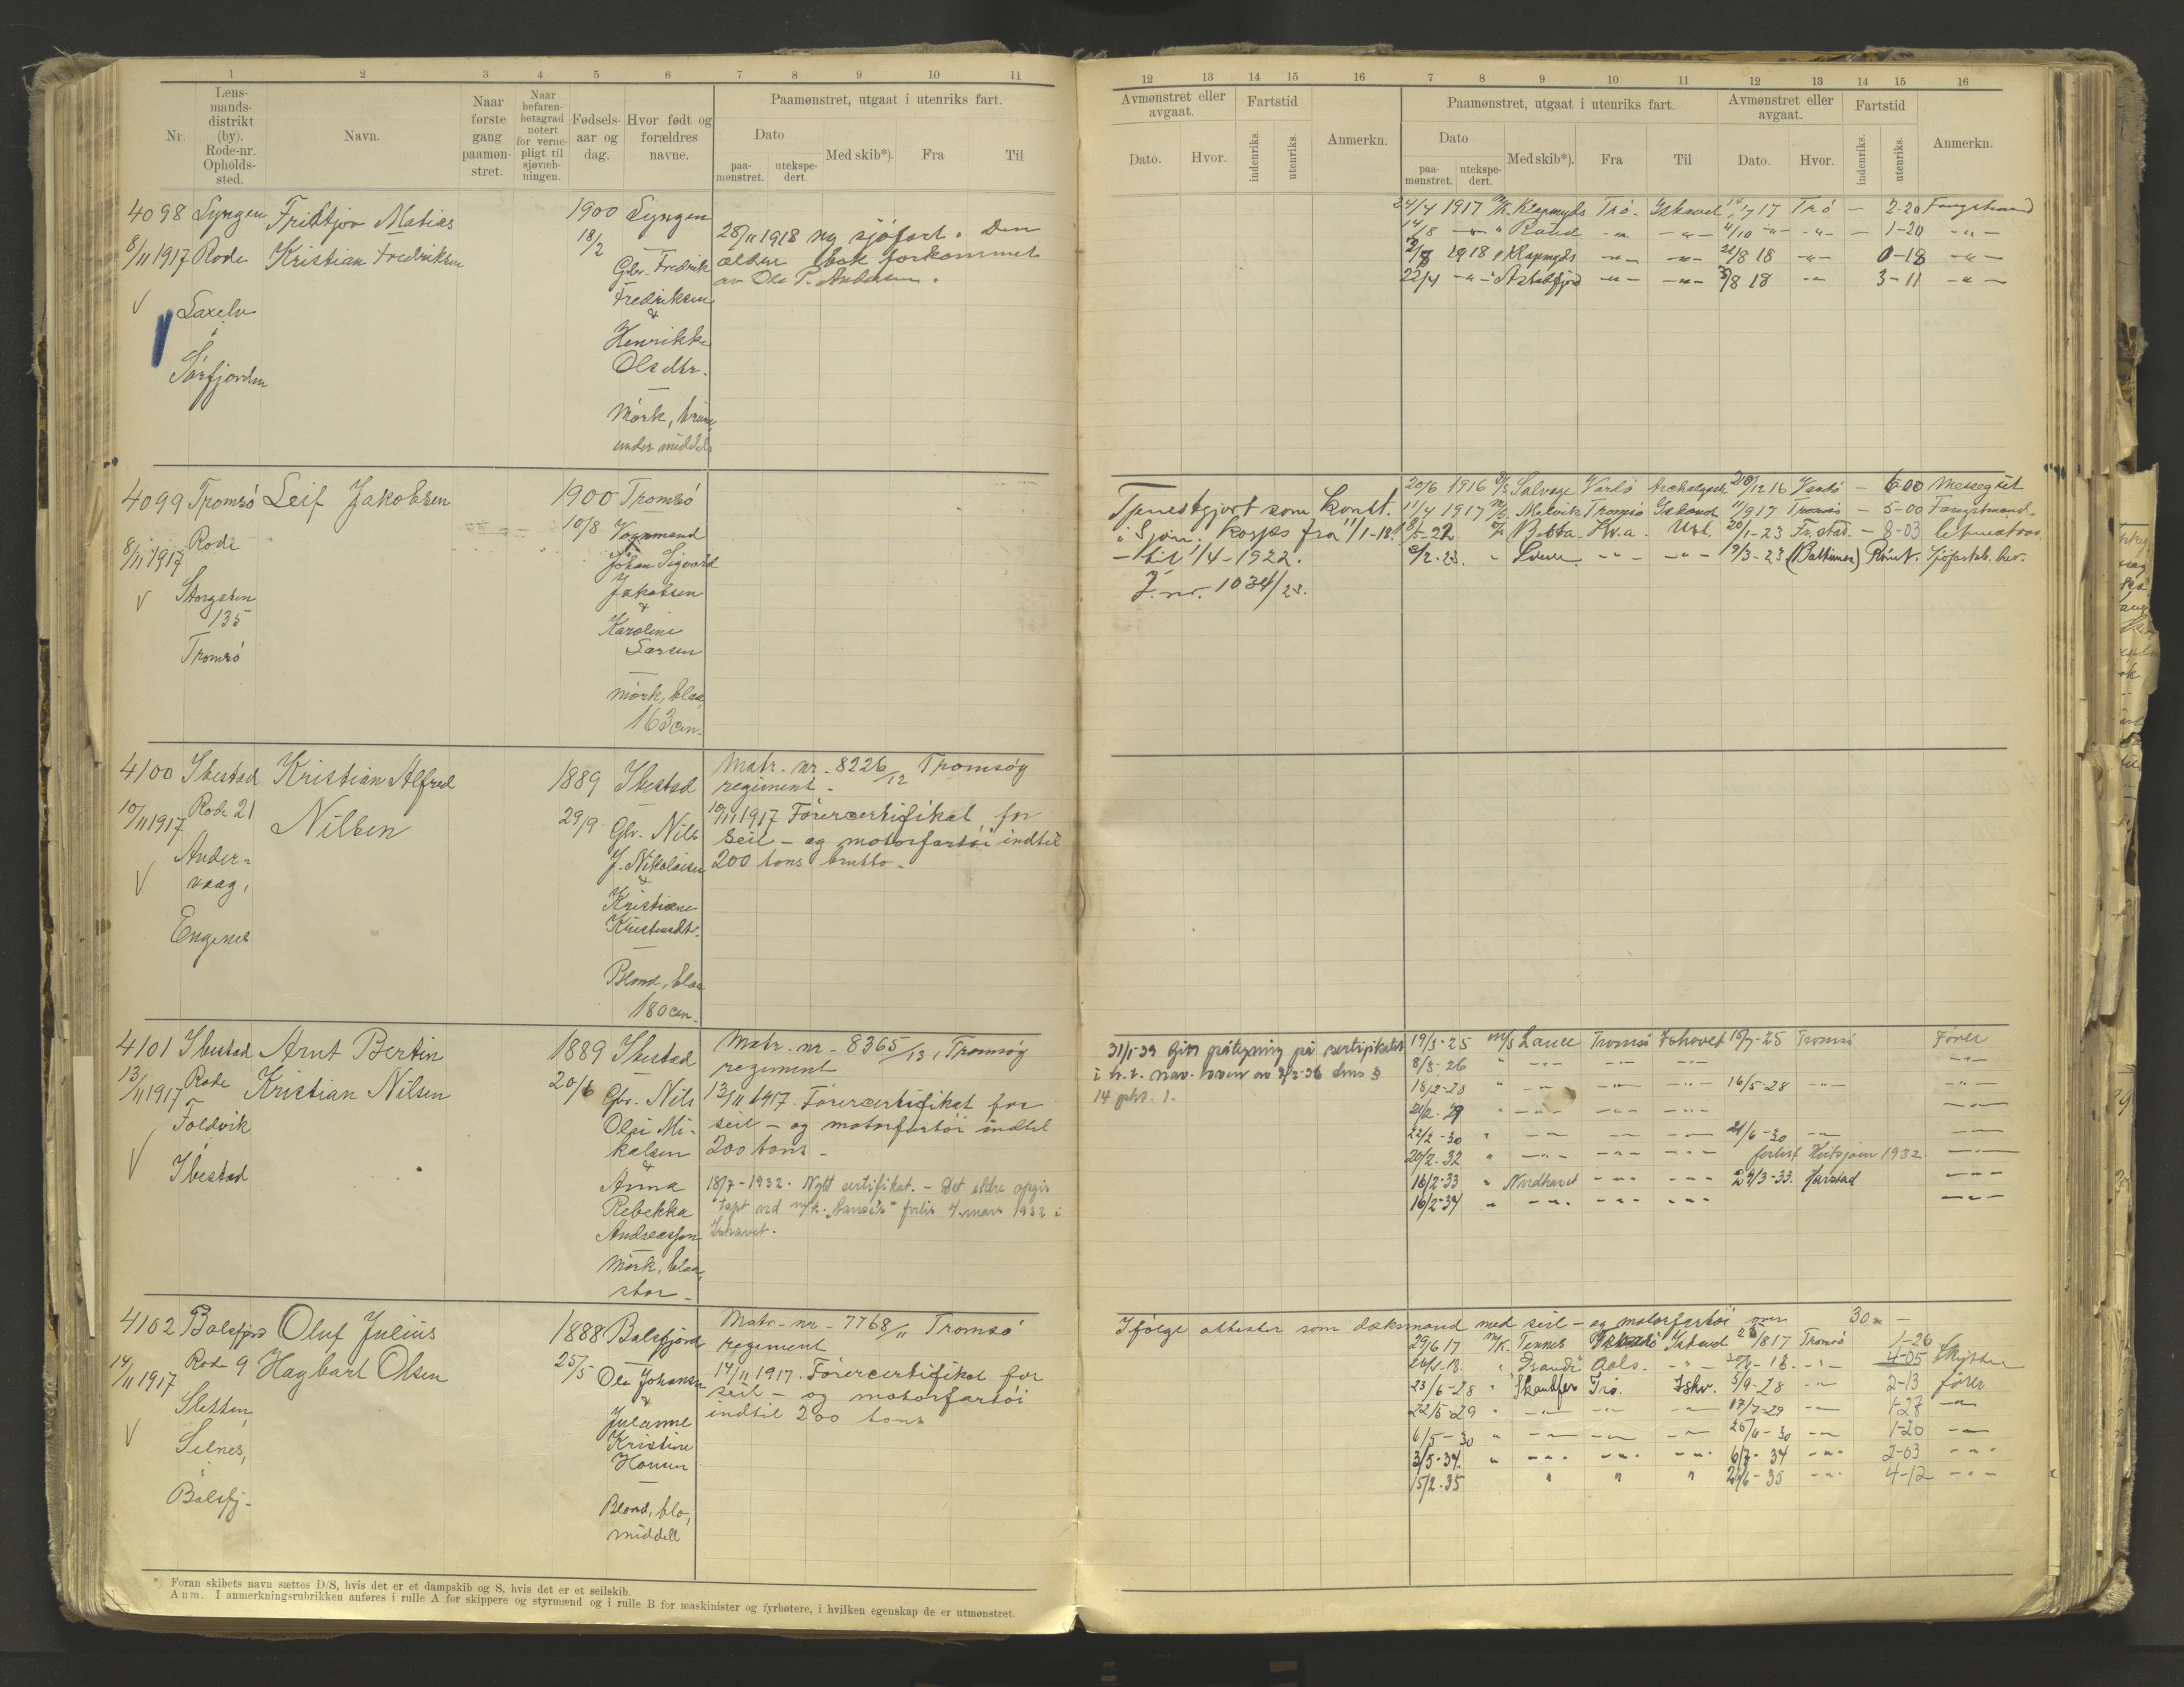 1 2 3 4 5 6 7 8 9 10 11
Nr.
Lens-
mands-
distrikt
(by).
Rode-nr.
Opholds-
sted.
Navn.
Naar
første
gang
paamøn-
stret.
Naar
befaren-
hetsgrad
notert
for verne-
pligt til
sjøvæb-
ningen.
Fødsels-
aar og
dag.
Hvor født og
forældres
navne.
Paamønstret, utgaat i utenriks fart.
Dato
paa-
mønstret.
utekspe-
dert.
Med skib*).
Fra
Til
4098 Lyngen Fridtjov Matias
8/11 1917 Rode Kristian Fredriksen
Laxelv
i
Sørfjorden
1900 Lyngen
18/2
Gbr. Fredrik
Fredriksen
&
Henrikke
Olsdtr.
Mörk, brune,
under middels
28/11 1918 ny sjöfart. Den
ældre bok forkommet
av Ole P. Andersen.
4099 Tromsö Leif Jakobsen
8/11 1917 Rode
Storgaten
135
Tromsö
1900 Tromsö
10/8 Vognmand
Johan Sigvard
Jakobsen
&
Karoline
Larsen
mörk, blaa,
163 cm.
4100 Ibestad Kristian Alfred
10/11 1917 Rode 21 Nilsen
Ander-
vaag,
Engenes
1889 Ibestad
29/9 Gbr. Nils
J. Nikolaisen
&
Kristiane
Kristensdtr.
Blond, blaa
180 cm.
Matr. nr. 8226/12 Tromsøy
regiment.
10/11 1917 Förercertifikat for
seil- og motorfartöi indtil
200 tons brutto.
4101 Ibestad Arnt Bertin
13/11 1917 Rode Kristian Nilsen
Foldvik
i
Ibestad
1889 Ibestad
20/6 Gbr. Nils
Olai Mi-
kalsen
&
Anna
Rebekka
Andreassen
Mörk, blaa,
stor.
Matr. nr. 8365/13, Tromsøy
regiment
13/11 1917. Förercertifikat for
seil- og motorfartöi indtil
200 tons.
18/7-1932. Nytt sertifikat. - Det eldre opgis
tapt ved m/k. forlis 4. mars 1932 i
Ishavet.
4102 Balsfjord Oluf Julius
14/11 1917 Rode 9 Hagbart Olsen
Sletten,
Selnes,
i
Balsfj.
1888 Balsfjord
25/5 Ole Johansen
&
Julanne
Kristine
Hansen
Blond, blå,
middell
Matr. nr. 7768/11 Tromsö
regiment
14/11 1917. Förercertifikat for
seil- og motorfartöi
indtil 200 tons
*) Foran skibets navn sættes D/S, hvis det er et dampskib og S, hvis det er et seilskib.
Anm. I anmerkningsrubrikken anføres i rulle A for skippere og styrmænd og i rulle B for maskinister og fyrbøtere, i hvilken egenskap de er utmønstret.
12 13 14 15 16 7 8 9 10 11 12 13 14 15 16
Avmønstret eller
avgaat.
Dato.
Hvor.
Fartstid
indenriks.
utenriks.
Anmerkn.
Paamønstret, utgaat i utenriks fart.
Dato
paa-
mønstret.
utekspe-
dert.
Med skib*).
Fra
Til
Avmønstret eller
avgaat.
Dato.
Hvor.
Fartstid
indenriks.
utenriks.
Anmerkn.
24/4 1917 M/K. Klapmyds Trö - Ishavet 17 Trö - 2-20 Fangstmand
14/8 -"- " -"- -"- 4/10 -"- -"- - 1-20 -"-
1918 " Klapmyds -"- -"- 21/8 18 -"- 0-18 -"-
22/4 -"- " -"- -"- 3/8 18 -"- 3-11 -"-
Tjenestgjort som Konst.
i Sjöm. korps fra 11/1-18.
- til 1/4-1922.
J. nr. 1034/23.
20/6 1916 Salvage Vardö Archangelsk /12 16 Vardö - 6-00 Messegut
11/4 1917 Tromsö Ishavet 11/9 17 Tromsö - 5-00 Fangstmand
/5-22 Kr.a. Utl. 20/1-23 Fr.stad. - 8-03 letmatros
/2-23. " -"- -"- 19/3-23 (Baltimore) Römt. Sjöfartsb. bev.
31/1-39 Gitt påtegning på sertifikatet
i h.t. nav. loven av
14 pkt. 1.
19/3-25 M/S Tromsö Ishavet 15/7-25 Tromsö Förer
8/3-26 " -"- -"- -"-
18/2-28 " -"- -"- -"- 16/5-28 -"- -"-
21/2-29 " -"- -"- -"- -"-
22/2-30 " -"- -"- -"- 21/6-30 -"- -"-
20/2-32 " -"- -"- -"- forlist Kvitsjöen 1932 -"-
16/2-33 " Nordhavet -"- -"- 24/3-33. Harstad -"-
16/2-34 " -"- -"- -"- -"-
Ifölge attester som dæksmand med seil- og motorfartöi over 30 m -
29/6 17 M/K. Ishavet /8 17 Tromsö 1-26
/1-18. " Aals. -"- /6-18. -"- 4-05 Skytter
23/6-28 " Trö. Ishv. 5/9-28 -"- 2-13 förer
22/5-29 " -"- -"- -"- 17/7-29 -"- 1-27 -"-
6/5-30 " -"- -"- -"- 25/6-30 -"- 1-20 -"-
3/5-34. " -"- -"- -"- 6/7-34 -"- 2-03 -"-
15/2-35 " " " /6-35 -"- 4-12 -"-